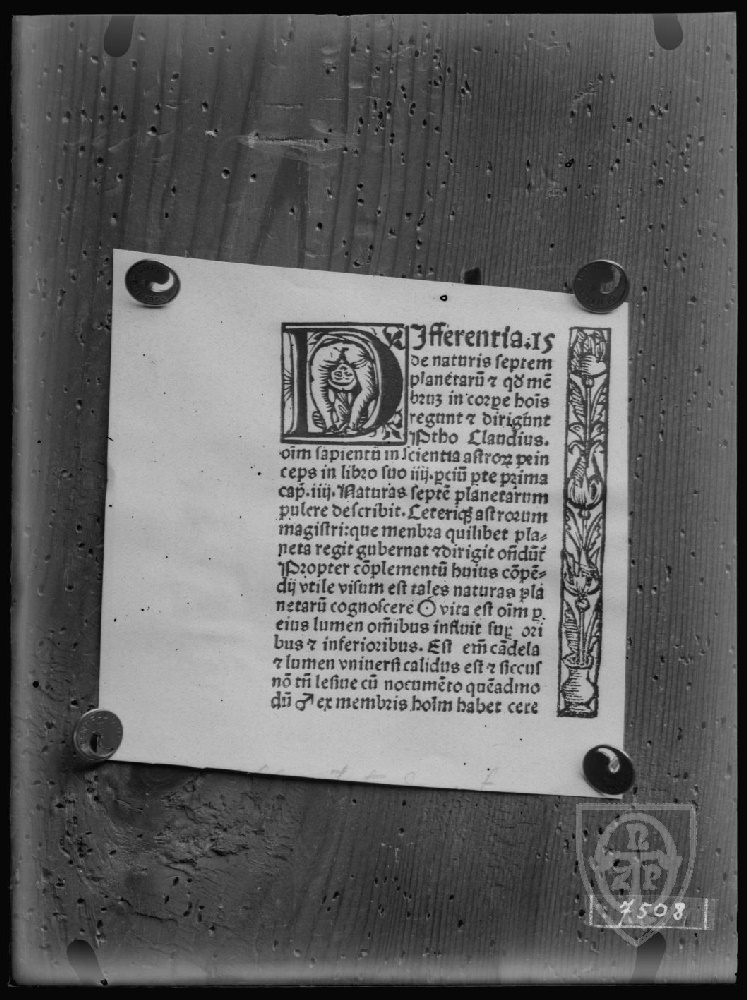 DIfferentia.15
de naturis septem
planetarū ⁊ qđ mē
bruʒ in corpe hoīs
regunt ⁊ dirigunt
Ptho Claudius.
oīm sapientū in scientia astroꝝ prin
ceps in libro suo iiij. pciū pte prima
cap. iiij. Naturas septē planetarum
pulcre describit. Ceteriqꝫ astrorum
magistri: que menbra quilibet pla-
neta regit gubernat ⁊ dirigit
Propter cōplementū huius cōpē-
dij vtile visum est tales naturas pla
netarū cognoscere ☉ vita est oīm ꝑ
eius lumen oīnibus influit suꝑ ori
bus ⁊ inferioribus. Est em̄ cādela
⁊ lumen vniuersi calidus est ⁊ siccus
nō tn̄ lesiue cū nocumēto quēadmo
dū ♂ ex membris hoīm habet cere
7508